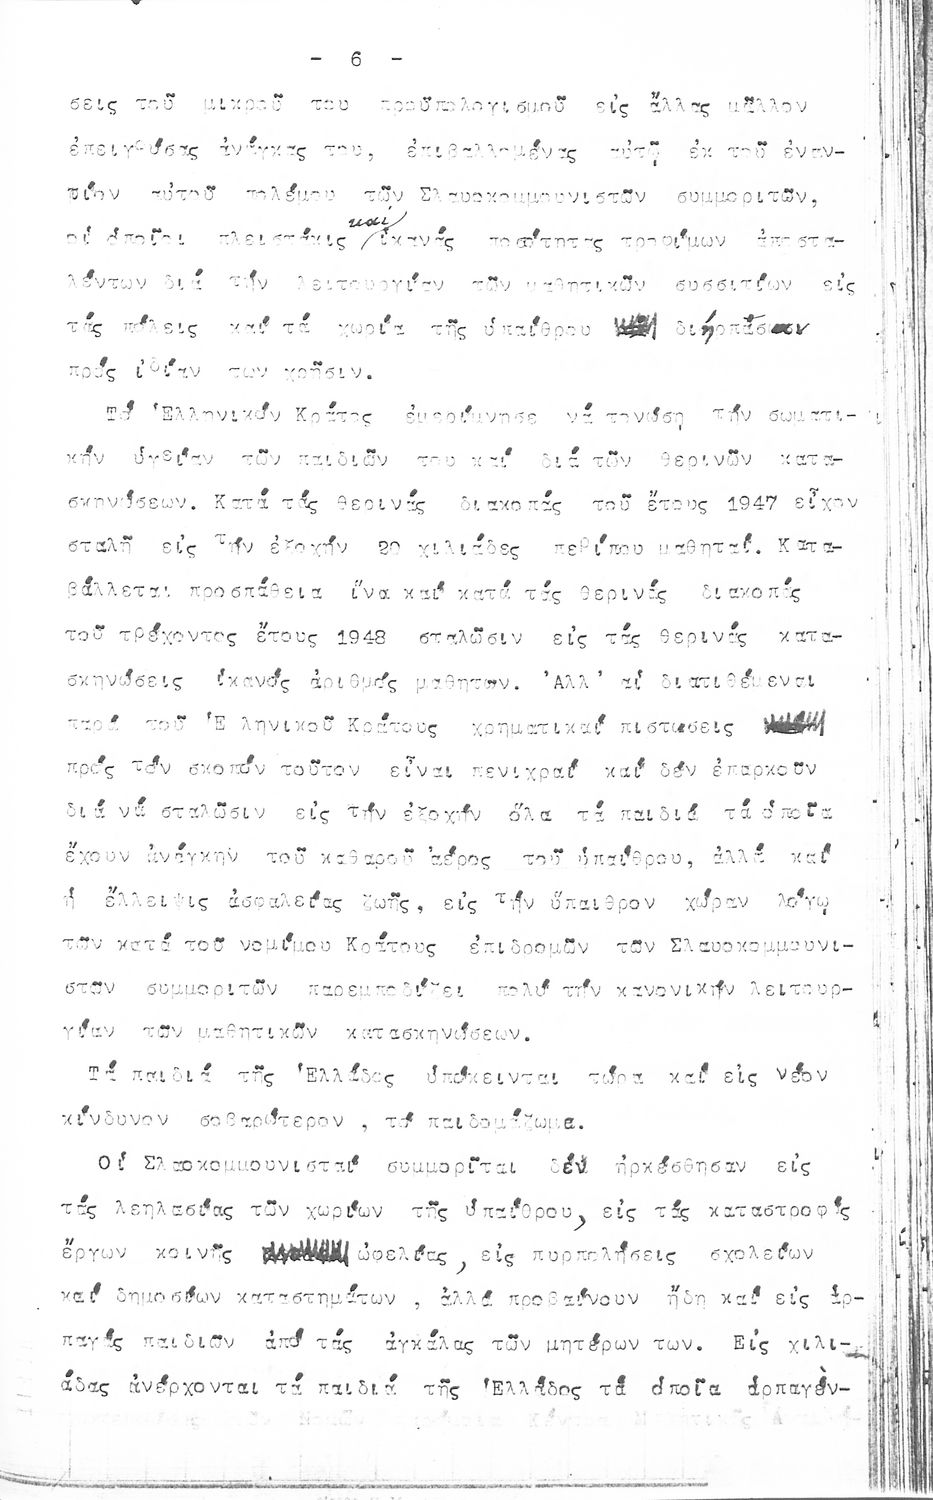 - 6 -
σεις τοῦ μικροῦ του προϋπολογισμοῦ εἰς ἄλλας μᾶλλον
ἐπειγούσας ἀνάγκας του, ἐπιβαλλομένας αὐτῷ ἐκ τοῦ ἐναν-
τίον αὐτοῦ πολέμου τῶν Σλαυοκομμουνιστῶν συμμοριτῶν,
οἱ ὁποῖοι πλειστάκις καί ἱκανάς ποσότητας τροφίμων ἀποστα-
λέντων διά τήν λειτουργίαν τῶν μαθητικῶν συσσιτίων εἰς
τάς πόλεις καί τά χωρία τῆς ὑπαίθρου διήρπασαν
πρός ἰδίαν των χρῆσιν.
Τό Ἑλληνικόν Κράτος ἐμερίμνησε νά τονώση τήν σωματι-
κήν ὑγείαν τῶν παιδιῶν του καί διά τῶν θερινῶν κατα-
σκηνώσεων. Κατά τάς θερινάς διακοπάς τοῦ ἔτους 1947 εἶχον
σταλῆ εἰς τήν ἐξοχήν 20 χιλιάδες περίπου μαθηταί. Κατα-
βάλλεται προσπάθεια ἵνα καί κατά τάς θερινάς διακοπάς
τοῦ τρέχοντος ἔτους 1948 σταλῶσιν εἰς τάς θερινάς κατα-
σκηνώσεις ἱκανός ἀριθμός μαθητων. Ἀλλ' αἱ διατιθέμεναι
παρά τοῦ Ἑ ληνικοῦ Κράτους χρηματικαί πιστωσεις
πρός τόν σκοπόν τοῦτον εἶναι πενιχραί καί δέν ἐπαρκοῦν
διά νά σταλῶσιν εἰς τήν ἐξοχήν ὅλα τά παιδιά τά ὁποῖα
ἔχουν ἀνάγκην τοῦ καθαροῦ ἀέρος τοῦ ὑπαίθρου, ἀλλά καί
ἡ ἔλλειψις ἀσφαλείας ζωῆς, εἰς τήν ὕπαιθρον χώραν λόγῳ
τῶν κατά τοῦ νομίμου Κράτους ἐπιδρομῶν τῶν Σλαυοκομμουνι-
στῶν συμμοριτῶν παρεμποδίζει πολύ τήν κανονικήν λειτουρ-
γίαν τῶν μαθητικῶν κατασκηνώσεων.
Τά παιδιά τῆς Ἑλλάδος ὑπόκεινται τώρα καί εἰς νέον
κίνδυνον σοβαρώτερον , τό παιδομάζωμα.
Οἱ Σλαοκομμουνισταί συμμορῖται δέν ἠρκέσθησαν εἰς
τάς λεηλασίας τῶν χωρίων τῆς ὑπαίθρου, εἰς τάς καταστροφάς
ἔργων κοινῆς ὠφελείας, εἰς πυρπολήσεις σχολείων
καί δημοσίων καταστημάτων , ἀλλά προβαίνουν ἤδη καί εἰς ἁρ-
παγάς παιδιῶν ἀπό τάς ἀγκάλας τῶν μητέρων των. Εἰς χιλι-
άδας ἀνέρχονται τά παιδιά τῆς Ἑλλάδος τά ὁποῖα ἁρπαγέν-